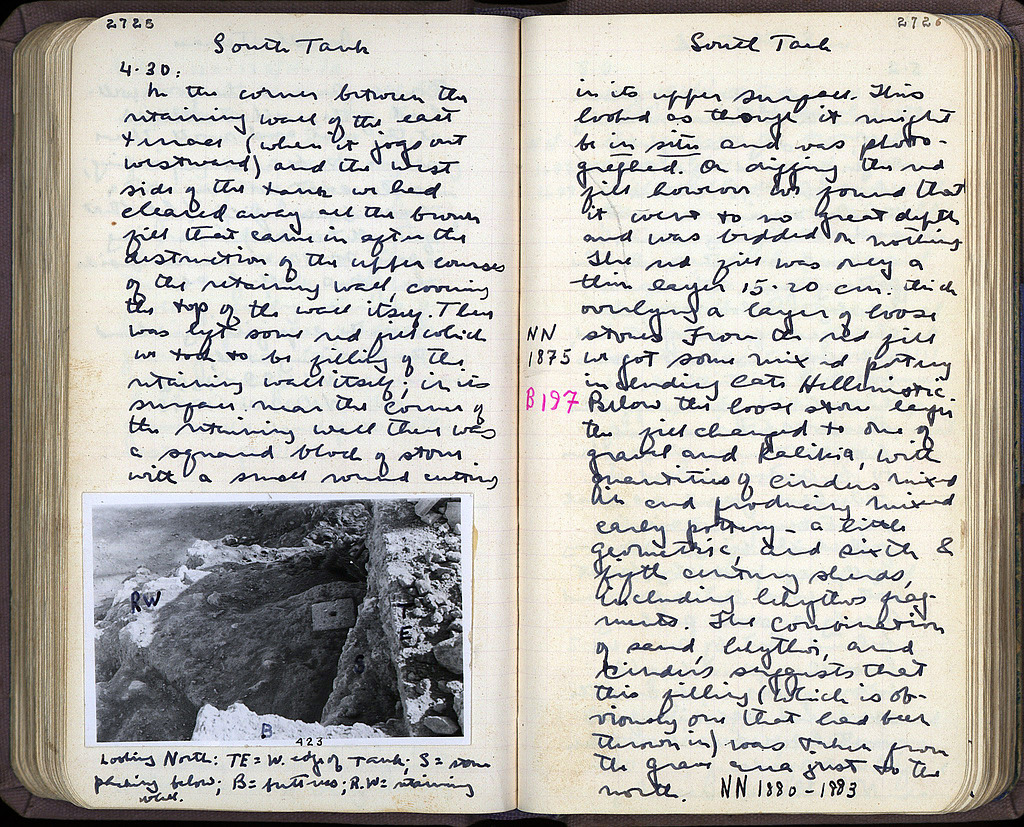 2725
South Tank
4.30:
In the corner between the
retaining wall of the east
terrace (when it jogs out
westward) and the west
side of the tank we had
cleared away all the brown
fill that came in after the
destruction of the upper courses
of the retaining wall, covering
the top of the wall itself. There
was left some red fill which
we took to be filling of the
retaining wall itself; in its
surface near the corner of
the retaining wall there was
a squared block of stone
with a small round cutting
RW
T
E
S
B
423
Looking North: TE = W. edge of Tank; S = stone
packing below; B = buttress; R.W = retaining
wall.
2726
South Tank
in its upper surface. This
looked as though it might
be in situ and was photo-
graphed. On digging the red
fill however we found that
it went to no great depth
and was bedded on nothing
The red fill was only a
thin layer 15-20 cm. thick
overlying a layer of loose
stones From the red fill
NN
1875
we got some mixed pottery
including late Hellenistic.
B197
Below the loose stone layer
the fill changed to one of
gravel and kalikia, with
quantities of cinders mixed
in and producing mixed
early pottery - a little
geometric, and sixth &
fifth century sherds,
including lekythos frag-
ments. The combination
of sand, lekythoi, and
cinders suggests that
this filling (which is ob-
viously one that had been
thrown in) was taken from
the grave area just to the
north. NN 1880-1883